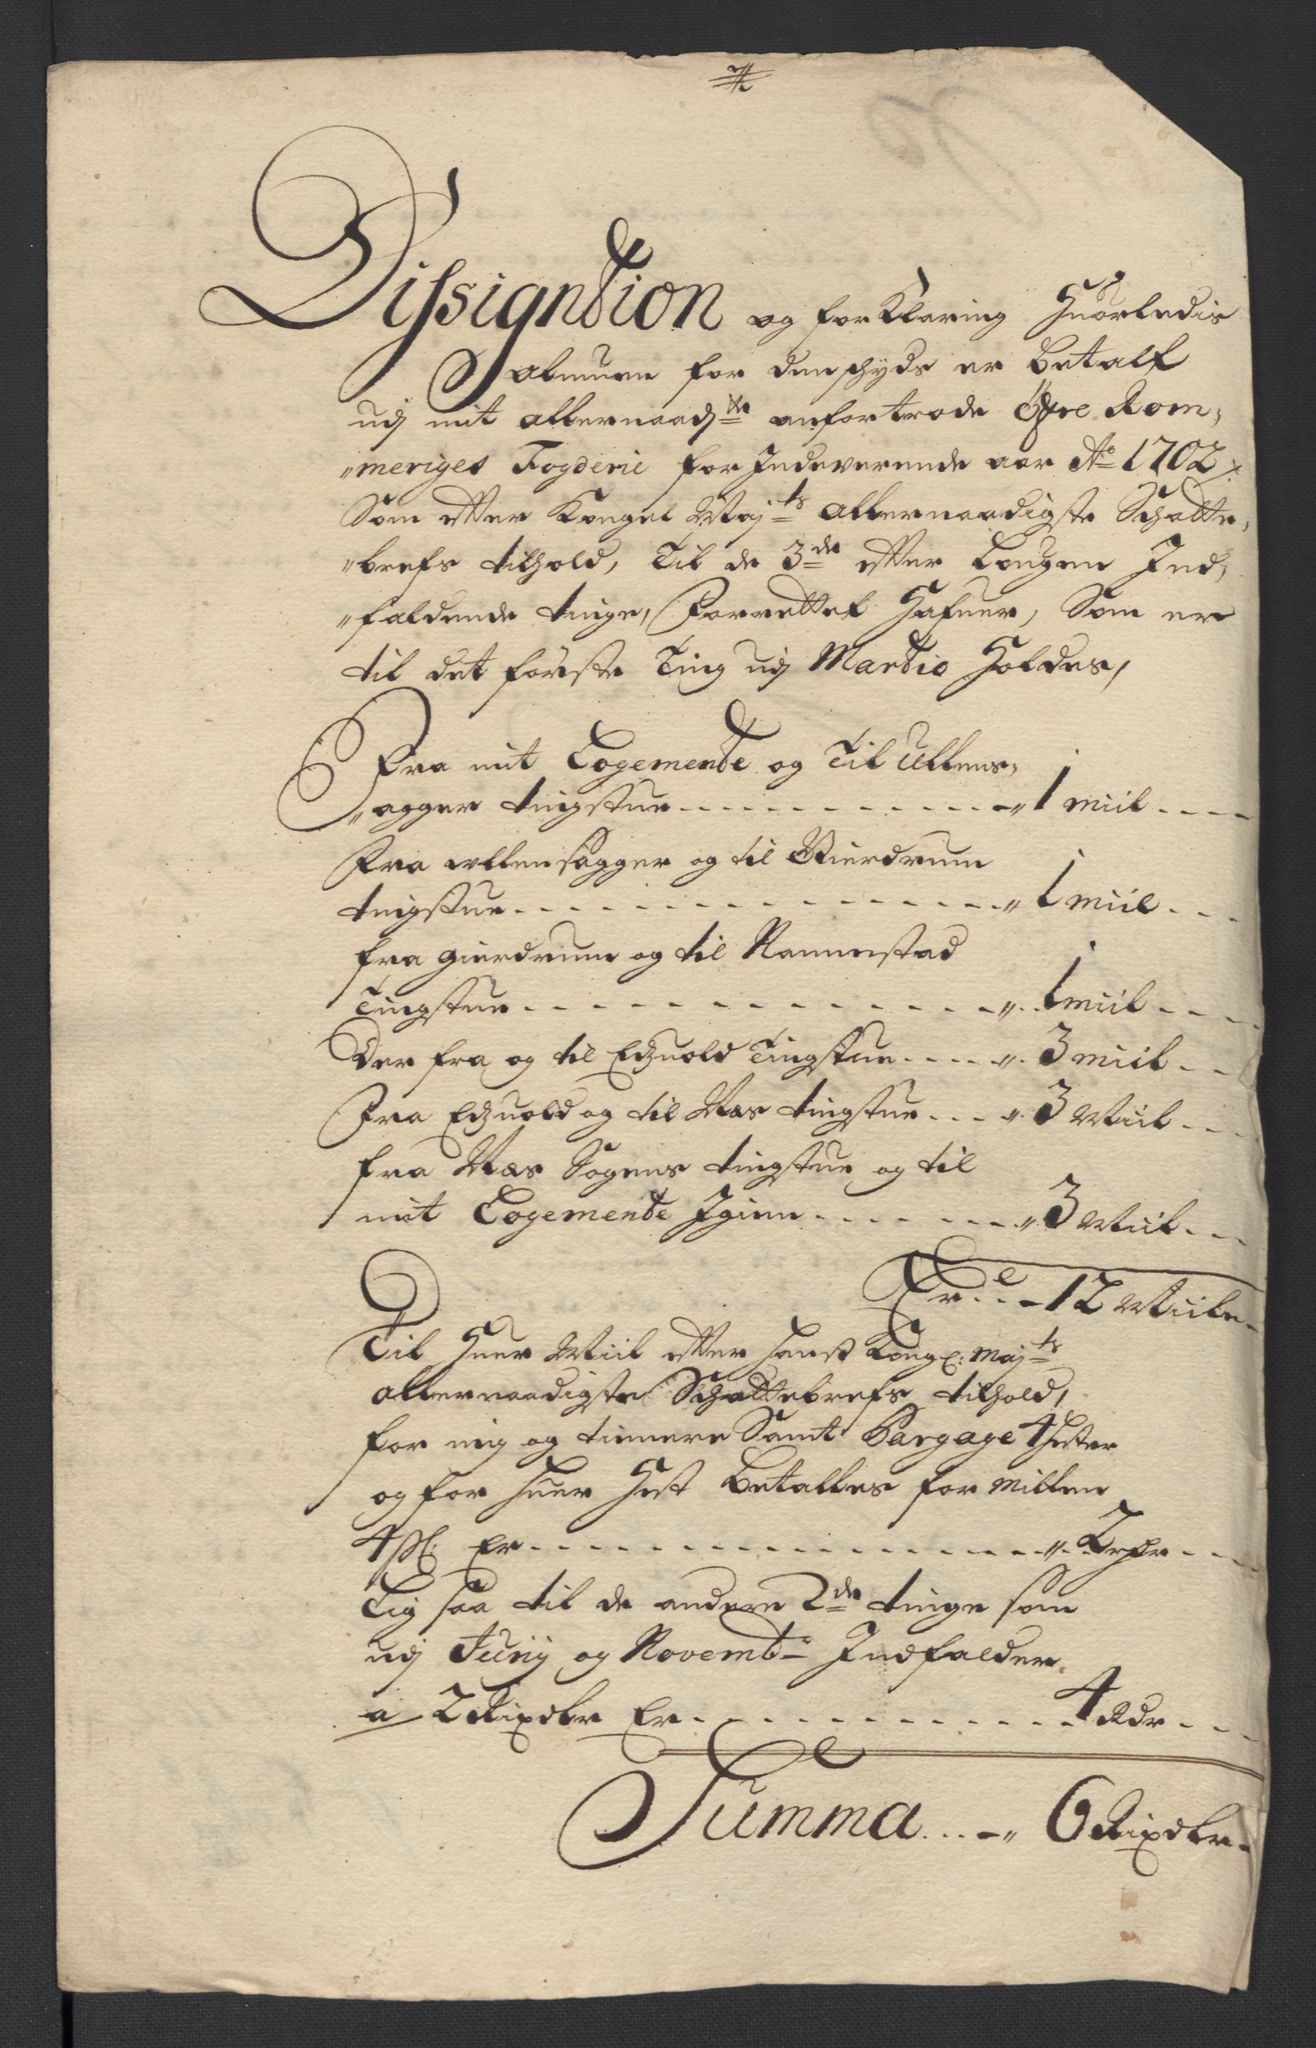 Dissigantion og forKlaring Huorledis
Almuen for den schyds er betalt
udj mit allernaadste anfortrode Øfre Rom,
"meriges Fogderie for Indeverende aar Ao 1702
Som efter Kongel Mayts allernaadigste Schatte,
"brefs tilhold, Til de 3de efter Lougen Ind,
"faldende tinge, Forrettet Hafuer, Som er
til det første Ting udj Martio Holdes,
Fra mit Logemente og Til Ullens,
"agger tingstue - - - " 1 miil - - -
Fra Ullensagger og til Gierdrum
tingstue - - - " 1 miil - - -
fra gierdrum og til Nannestad
Tingstue - - - " 1 miil - - -
Der fra og til Edzuold Tingstue - - - " 3 miil - -
Fra Edzuold og til Næs tingstue - - - " 3 Miil - - -
fra Næs Sogens tingstue og til
mit Logemente Igien - - - " 3 Miil - - -
Er - - 12 Miile -
Til Huer Miil efter hanst Kongl: Mayts
allernaadigste Schattebrefs tilhold,
for mig og tienere Samt Bargage 4 hester
og for huer Hest betalles for Millen
4 sk: Er - - - " 2 rdr - - -
Lig saa til de andere 2de tinge som
udj Junij og Novembr Indfalder
a 2 Rixdlr Er - - - 4 Rdr - - -
Summa - - - " 6 Rixdlr -